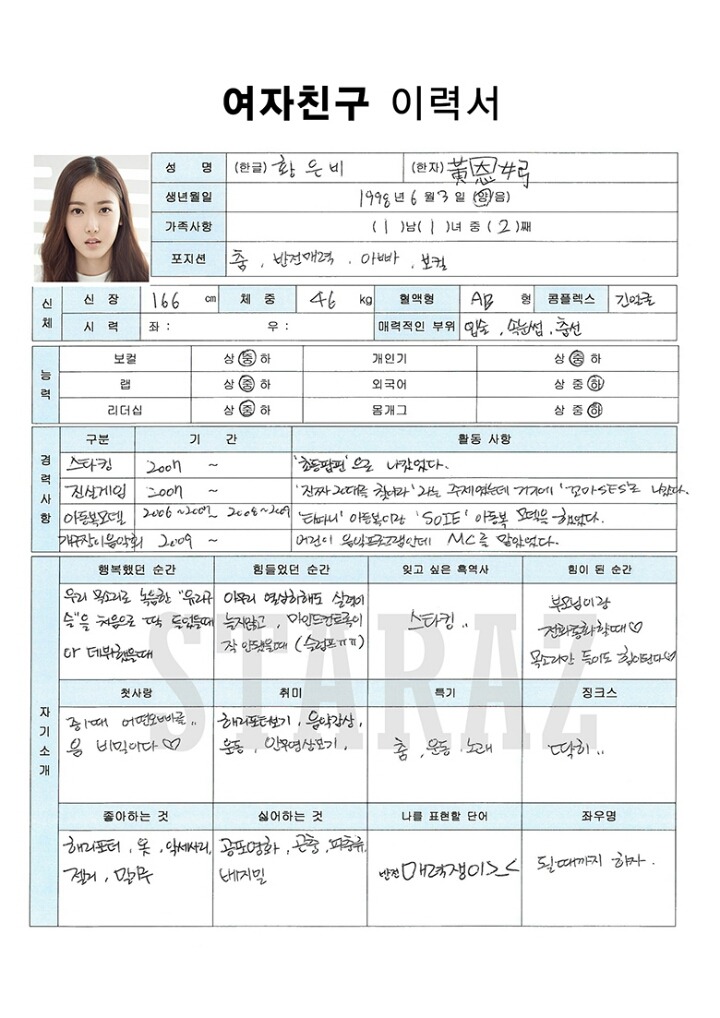 여자친구 이력서
성 명 (한글) 황은비 (한자) 黃恩
생년월일 1998년 6월 3일 (양/음)
가족사항 (1)남(1)녀 중 (2)째
포지션 춤, 반전매력, 아빠, 보컬
신체
신 장 166 cm 체 중 46 kg 혈액형 AB 형 콤플렉스 긴얼굴
시 력 좌: 우: 매력적인 부위 입술, 속눈썹, 춤선
능력
보컬 상 중 하 개인기 상 중 하
랩 상 중 하 외국어 상 중 하
리더십 상 중 하 몸개그 상 중 하
경력사항
구분 기 간 활동 사항
스타킹 2007 ~ '초등팝핀'으로 나갔었다.
진실게임 2007 ~ '진짜 20대를 찾아라' 라는 주제였는데 거기에 '꼬마SES'로 나갔다.
아동복모델 2006~2007 ~ '티파니' 아동복이랑 'SOIE' 아동복 모델을 했었다.
개구장이음악회 2009 ~ 어린이 음악프로그램인데 MC를 맡았었다.
자기소개
행복했던 순간 힘들었던 순간 잊고 싶은 흑역사 힘이 된 순간
우리 목소리로 녹음한 "유리구
슬"을 처음으로 딱 들었을때
아 데뷔했을때
아무리 연습해해도 실력이
늘지않고, 마인드컨트롤이
잘 안됐을때 (슬럼프ㅠㅠ)
스타킹,,
부모님이랑
전화통화할때♡
목소리만 들어도 힘이된다♡
첫사랑 취미 특기 징크스
중1때 어떤오빠를,,
음 비밀이다♡
해리포터보기, 음악감상,
운동, 안무영상보기,
춤, 운동, 노래
딱히,,
좋아하는 것 싫어하는 것 나를 표현할 단어 좌우명
해리포터, 옷, 악세사리,
젤리,
공포영화, 곤충, 파충류,
베지밀
반전 매력쟁이>_<
될때까지 하자.
STARAZ